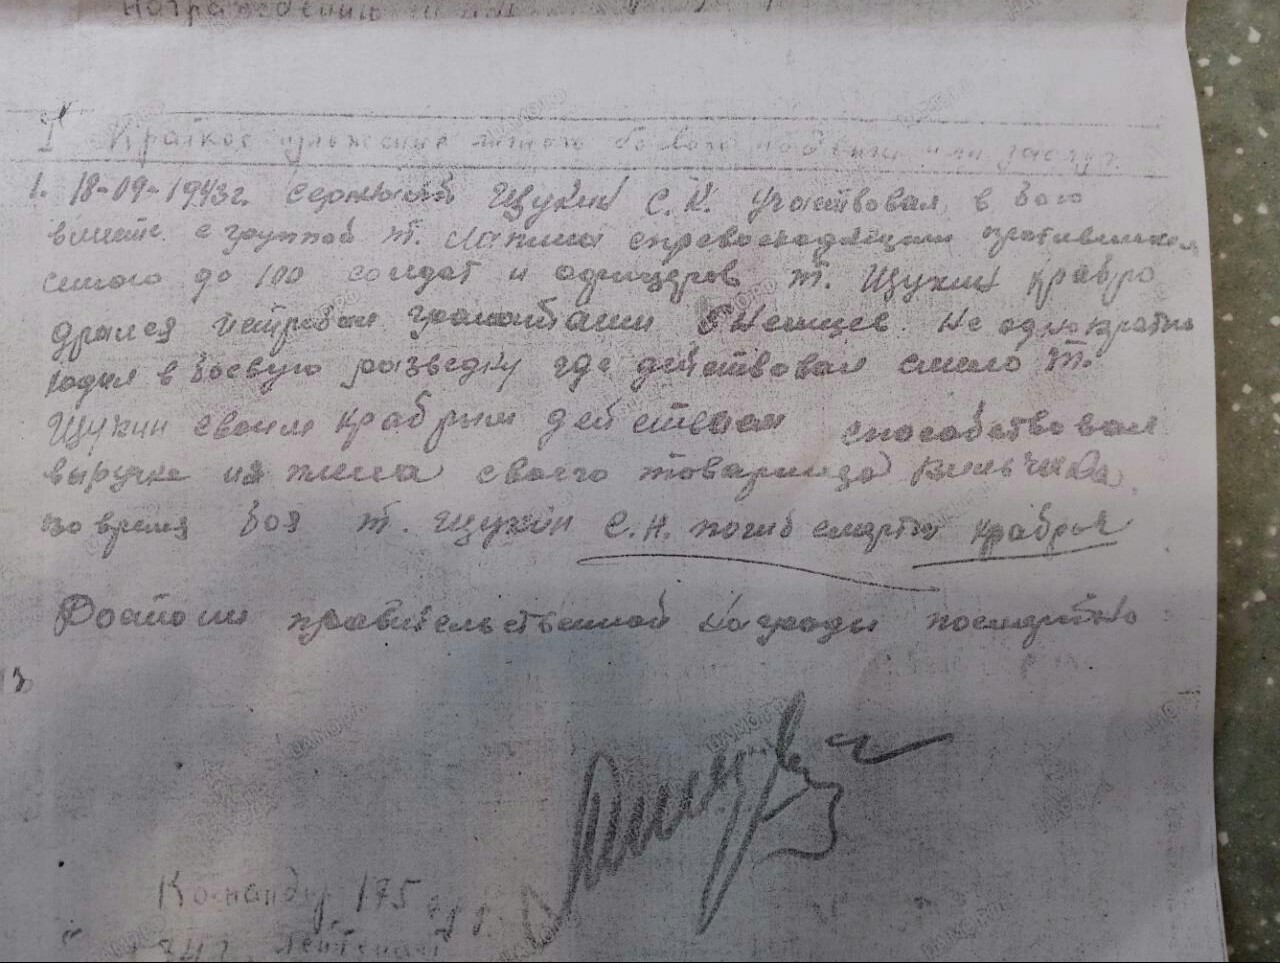 I Краткое изложение личного боевого подвига или заслуг.
1. 18-09-1943г. сержант Щукин С.К. участвовал в бою
вместе с группой т. Лапина
до 100 солдат и офицеров т. Щукин храбро
дрался гранатами 5 немцев. Не однократно
ходил в боевую разведку где действовал смело т.
Щукин своим храбрым действиям способствовал
выручке из плена своего товарища
во время боя т. Щукин С.Н. погиб смертью храбрых
Достоин правительственной награды посмертно
Командир 175